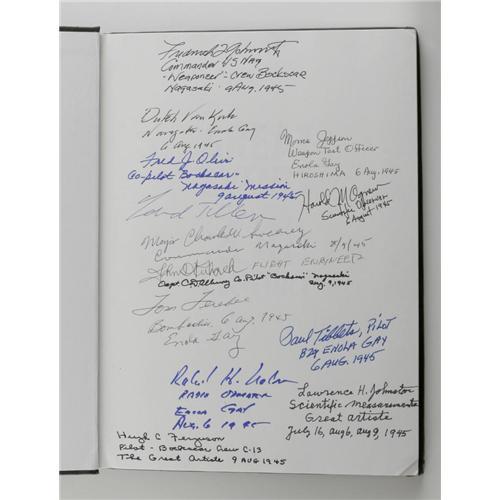 Frederick L Ashworth
Commander US Navy
"Weaponeer" - Crew Bockscar
Nagasaki - 9 Aug. 1945
Dutch Van Kirk
Navigator - Enola Gay
6 Aug. 1945
Morris Jeppson
Weapon Test Officer
Enola Gay
HIROSHIMA 6 Aug. 1945
Fred J. Olivi
Co-pilot "Bockscar"
Nagasaki Mission
9 August 1945
Harold M Agnew
Scientific Observer
6 August 1945
Major Charles W Sweeney
Commander Nagasaki 8/9/45
FLIGHT ENGINEER
Capt. "Bockscar" Nagasaki
Aug 9, 1945
Tom Ferebee
Bombardier 6 Aug. 1945
Enola Gay
Paul Tibbets, Pilot
B29 ENOLA GAY
6 AUG. 1945
RADIO OPERATOR
ENOLA GAY
AUG. 6 1945
Lawrence H. Johnston
Scientific Measurements
Great Artiste
July 16, Aug 6, Aug 9, 1945
Hugh C Ferguson
Pilot - Bockscar Crew C-13
The Great Artiste 9 AUG 1945